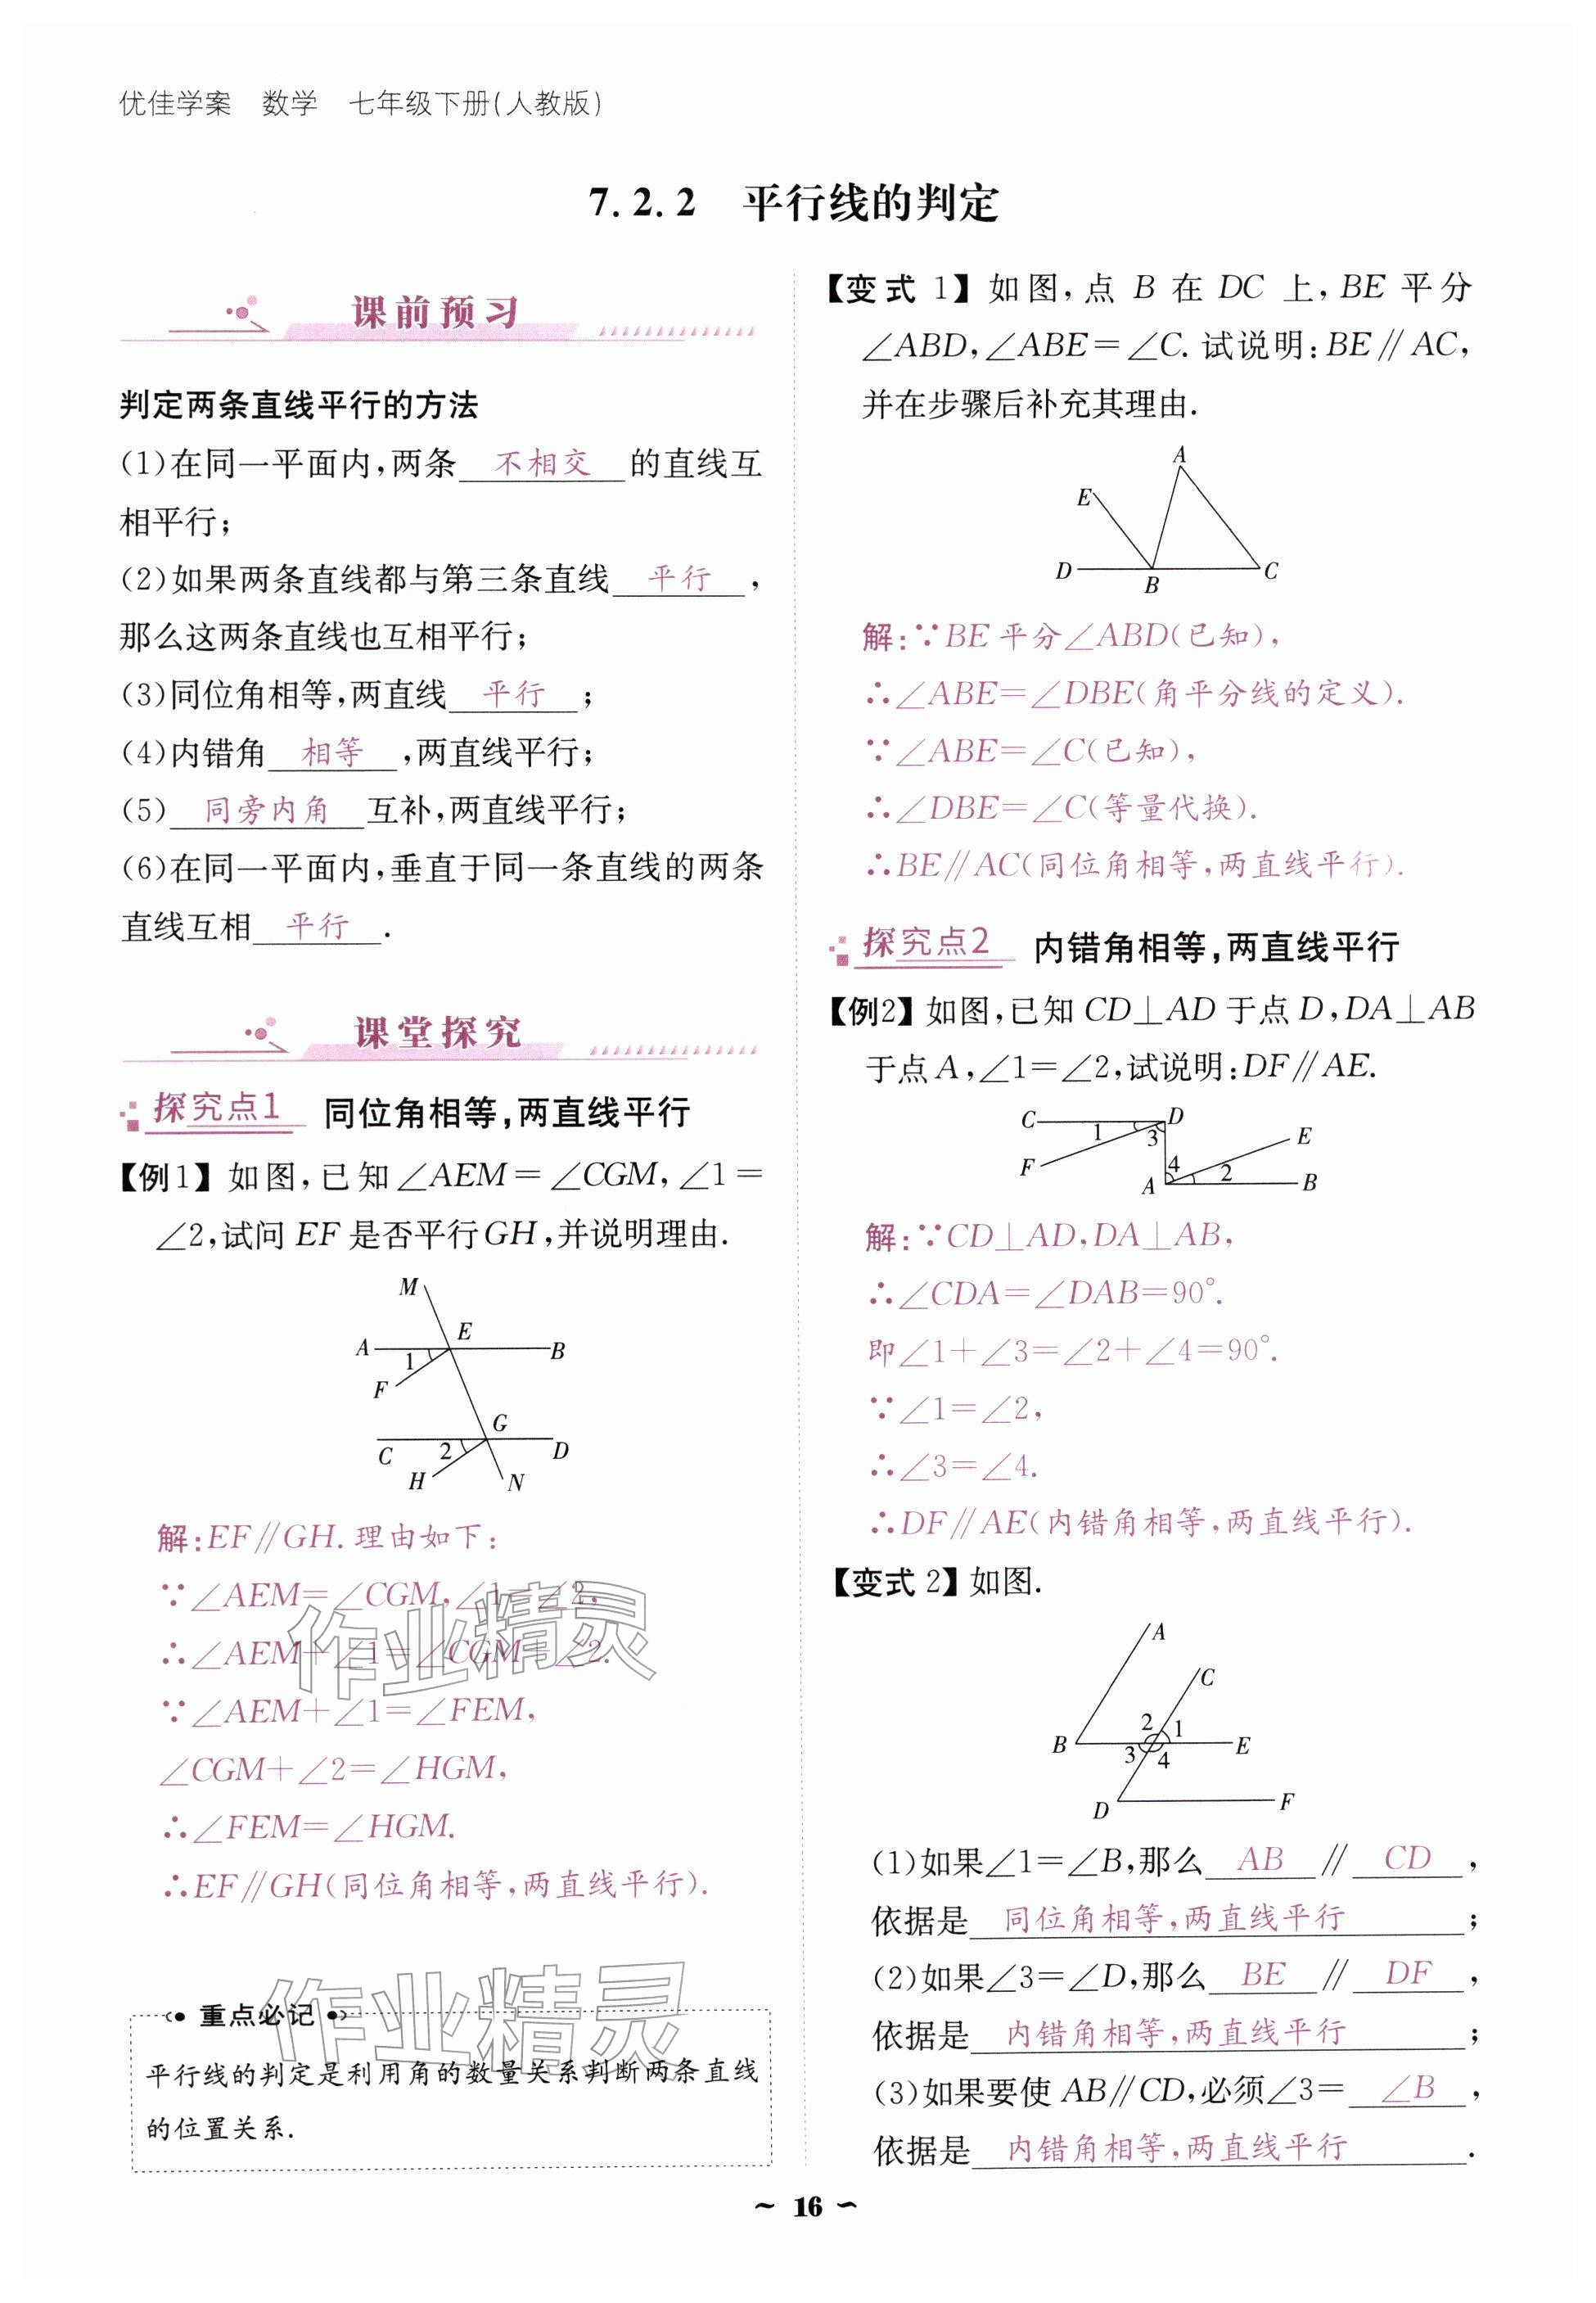 优佳学案 数学 七年级下册(人教版)
7.2.2 平行线的判定
课前预习
判定两条直线平行的方法
(1)在同一平面内,两条 不相交 的直线互
相平行;
(2)如果两条直线都与第三条直线 平行 ,
那么这两条直线也互相平行;
(3)同位角相等,两直线 平行 ;
(4)内错角 相等 ,两直线平行;
(5) 同旁内角 互补,两直线平行;
(6)在同一平面内,垂直于同一条直线的两条
直线互相 平行 .
课堂探究
探究点1 同位角相等,两直线平行
【例1】如图,已知∠AEM=∠CGM,∠1=
∠2,试问EF是否平行GH,并说明理由.
M
A E B
1
F
G
C 2 D
H N
解:EF∥GH.理由如下:
∵∠AEM=∠CGM,∠1=∠2,
∴∠AEM+∠1=∠CGM+∠2.
∵∠AEM+∠1=∠FEM,
∠CGM+∠2=∠HGM,
∴∠FEM=∠HGM.
∴EF∥GH(同位角相等,两直线平行).
作业精灵
作业精灵
重点必记
平行线的判定是利用角的数量关系判断两条直线
的位置关系.
【变式1】如图,点B在DC上,BE平分
∠ABD,∠ABE=∠C.试说明:BE∥AC,
并在步骤后补充其理由.
A
E
D B C
解:∵BE平分∠ABD(已知),
∴∠ABE=∠DBE(角平分线的定义).
∵∠ABE=∠C(已知),
∴∠DBE=∠C(等量代换).
∴BE∥AC(同位角相等,两直线平行).
探究点2 内错角相等,两直线平行
【例2】如图,已知CD⊥AD于点D,DA⊥AB
于点A,∠1=∠2,试说明:DF∥AE.
C D
1 3 E
F 4 2
A B
解:∵CD⊥AD,DA⊥AB,
∴∠CDA=∠DAB=90°.
即∠1+∠3=∠2+∠4=90°.
∵∠1=∠2,
∴∠3=∠4.
∴DF∥AE(内错角相等,两直线平行).
【变式2】如图.
A
C
2 1
B E
3 4
D F
(1)如果∠1=∠B,那么 AB ∥ CD ,
依据是 同位角相等,两直线平行 ;
(2)如果∠3=∠D,那么 BE ∥ DF ,
依据是 内错角相等,两直线平行 ;
(3)如果要使AB∥CD,必须∠3= ∠B ,
依据是 内错角相等,两直线平行 .
~ 16 ~